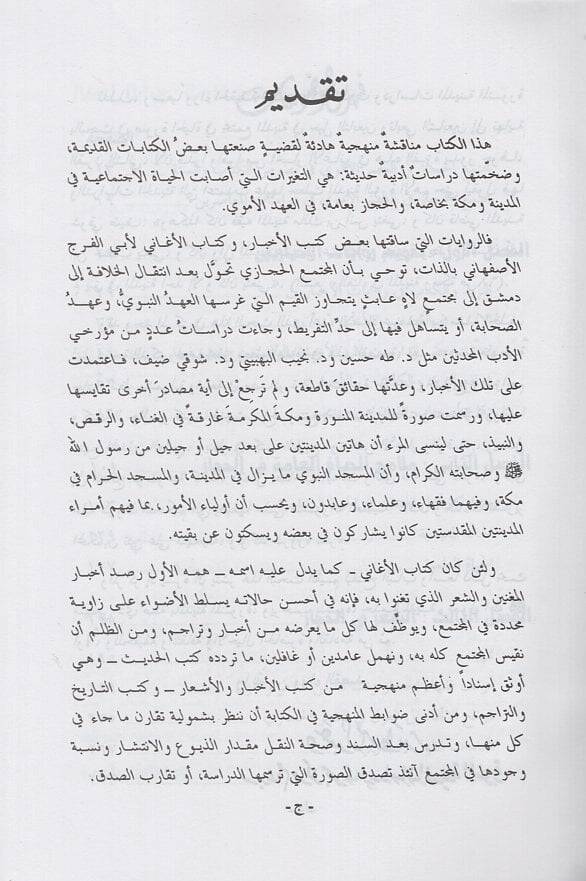 تقديم
هذا الكتاب مناقشةٌ منهجية هادئةٌ لقضيةٍ صنعتها بعضُ الكتابات القديمة،
وضخمتها دراساتٌ أدبية حديثة: هي التغيرات التي أصابت الحياة الاجتماعية في
المدينة ومكة بخاصة، والحجاز بعامة، في العهد الأموي.
فالروايات التي ساقتها بعض كتب الأخبار، وكتاب الأغاني لأبي الفرج
الأصفهاني بالذات، توحي بأن المجتمع الحجازي تحوَّل بعد انتقال الخلافة إلى
دمشق إلى مجتمعٍ لاهٍ عابثٍ يتجاوز القيم التي غرسها العهدُ النبويُّ، وعهدُ
الصحابة، أو يتساهل فيها إلى حدِّ التفريط، وجاءت دراساتُ عددٍ من مؤرخي
الأدب المحدثين مثل د. طه حسين ود. نجيب البهبيتي ود. شوقي ضيف، فاعتمدت
على تلك الأخبار، وعدتَّها حقائقَ قاطعة، ولم ترجعْ إلى أية مصادرَ أخرى تقايسها
عليها، ورسمت صورةً للمدينة المنورة ومكةَ المكرمةَ غارقةً في الغناء، والرقص،
والنبيذ، حتى لينسى المرءُ أن هاتين المدينتين على بعد جيل أو جيلين من رسول الله
ﷺ وصحابته الكرام، وأن المسجد النبوي ما يزال في المدينة، والمسجد الحرام في
مكة، وفيهما فقهاء، وعلماء، وعابدون، ويحسب أن أولياء الأمور، بما فيهم أمراء
المدينتين المقدستين كانوا يشاركون في بعضه ويسكتون عن بقيته.
ولئن كان كتاب الأغاني ـ كما يدل عليه اسمه ـ همه الأول رصد أخبار
المغنين والشعر الذي تغنوا به، فإنه في أحسن حالاته يسلط الأضواء على زاوية
محددة في المجتمع، ويوظِّف لها كل ما يعرضه من أخبار وتراجم، ومن الظلم أن
نقيس المجتمع كله به، ونهمل عامدين أو غافلين، ما تردده كتب الحديث ـ وهي
أوثق إسناداً وأعظم منهجية من كتب الأخبار والأشعار ـ وكتب التاريخ
والتراجم، ومن أدنى ضوابط المنهجية في الكتابة أن ننظر بشمولية تقارن ما جاء في
كل منها، وتدرس بعد السند وصحة النقل مقدار الذيوع والانتشار ونسبة
وجودها في المجتمع آنئذ تصدق الصورة التي ترسمها الدراسة، أو تقارب الصدق.
- ج -